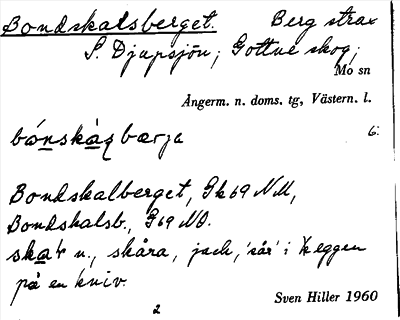 Bondskalsberget. Berg strax
S. Djupsjön; Gottne skog,
Mo sn
Ångerm. n. doms. tg, Västern. l.
bǿnskàɀ bærja 6.
Bondskalberget, Gk 69 NM,
Bondskalsb., G 69 NO.
skaɽ n., skåra, jack, 'sår' i eggen
på en kniv.
2
Sven Hiller 1960